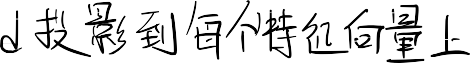 d投影到每个特征向量上